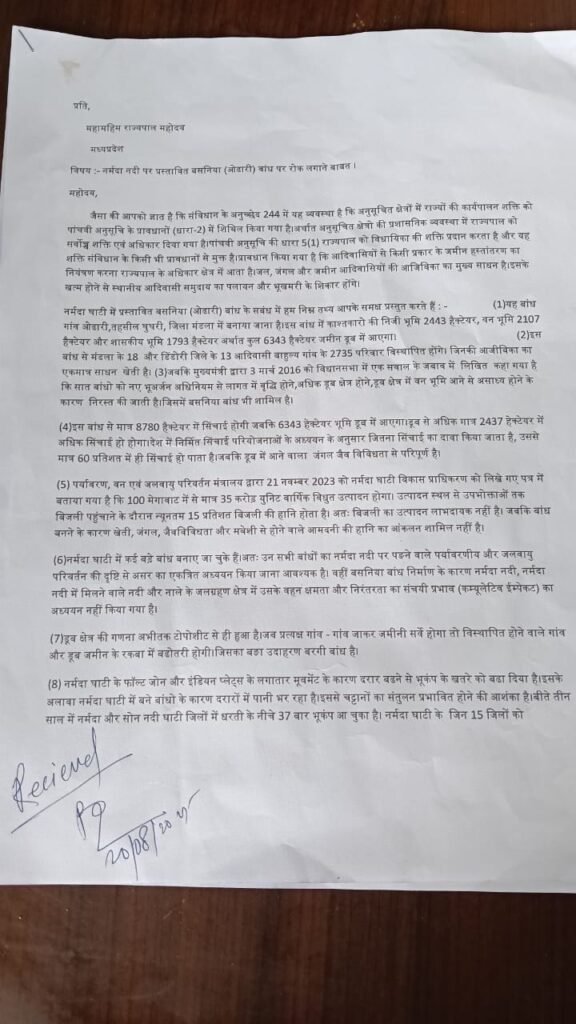 प्रति,
महामहिम राज्यपाल महोदय
मध्यप्रदेश
विषय :- नर्मदा नदी पर प्रस्तावित बसनिया (ओढारी) बांध पर रोक लगाने बाबत ।
महोदय,
जैसा की आपको ज्ञात है कि संविधान के अनुच्छेद 244 में यह व्यवस्था है कि अनुसूचित क्षेत्रों में राज्यों की कार्यपालन शक्ति को
पांचवी अनुसूचि के प्रावधानों (धारा-2) में शिथिल किया गया है।अर्थात अनुसूचित क्षेत्रो की प्रशासनिक व्यवस्था में राज्यपाल को
सर्वोच्च शक्ति एवं अधिकार दिया गया है।पांचवी अनुसूचि की धारा 5(1) राज्यपाल को विधायिका की शक्ति प्रदान करता है और यह
शक्ति संविधान के किसी भी प्रावधानों से मुक्त है।प्रावधान किया गया है कि आदिवासियों से किसी प्रकार के जमीन हस्तांतरण का
नियंत्रण करना राज्यपाल के अधिकार क्षेत्र में आता है।जल, जंगल और जमीन आदिवासियों की आजिविका का मुख्य साधन है।इसके
खत्म होने से स्थानीय आदिवासी समुदाय का पलायन और भूखमरी के शिकार होंगे।
नर्मदा घाटी में प्रस्तावित बसनिया (ओढारी) बांध के सबंध में हम निम्न तथ्य आपके समक्ष प्रस्तुत करते हैं : - (1)यह बांध
गांव ओढारी,तहसील घुघरी, जिला मंडला में बनाया जाना है।इस बांध में काश्तकारो की निजी भूमि 2443 हैक्टेयर, वन भूमि 2107
हैक्टेयर और शासकीय भूमि 1793 हैक्टेयर अर्थात कुल 6343 हैक्टेयर जमीन डूब में आएगा। (2)इस
बांध से मंडला के 18 और डिंडोरी जिले के 13 आदिवासी बाहुल्य गांव के 2735 परिवार विस्थापित होंगे। जिनकी आजीविका का
एकमात्र साधन खेती है। (3)जबकि मुख्यमंत्री द्वारा 3 मार्च 2016 को विधानसभा में एक सवाल के जबाव में लिखित कहा गया है
कि सात बांधो को नए भूअर्जन अधिनियम से लागत में वृद्धि होने,अधिक डूब क्षेत्र होने,डूब क्षेत्र में वन भूमि आने से असाध्य होने के
कारण निरस्त की जाती है।जिसमें बसनिया बांध भी शामिल है।
(4)इस बांध से मात्र 8780 हैक्टेयर में सिंचाई होगी जबकि 6343 हेक्टेयर भूमि डूब में आएगा।डूब से अधिक मात्र 2437 हेक्टेयर में
अधिक सिंचाई हो होगा।देश में निर्मित सिंचाई परियोजनाओं के अध्ययन के अनुसार जितना सिंचाई का दावा किया जाता है, उससे
मात्र 60 प्रतिशत में ही सिंचाई हो पाता है।जबकि डूब में आने वाला जंगल जैव विविधता से परिपूर्ण है।
(5) पर्यावरण, वन एवं जलवायु परिवर्तन मंत्रालय द्वारा 21 नवम्बर 2023 को नर्मदा घाटी विकास प्राधिकरण को लिखे गए पत्र में
बताया गया है कि 100 मेगावाट में से मात्र 35 करोड़ युनिट वार्षिक विधुत उत्पादन होगा। उत्पादन स्थल से उपभोक्ताओं तक
बिजली पहुंचाने के दौरान न्यूनतम 15 प्रतिशत बिजली की हानि होता है। अतः बिजली का उत्पादन लाभदायक नहीं है। जबकि बांध
बनने के कारण खेती, जंगल, जैवविविधता और मवेशी से होने वाले आमदनी की हानि का आंकलन शामिल नहीं है।
(6)नर्मदा घाटी में कई बड़े बांध बनाए जा चुके है।अतः उन सभी बांधों का नर्मदा नदी पर पडने वाले पर्यावरणीय और जलवायु
परिवर्तन की दृष्टि से असर का एकत्रित अध्ययन किया जाना आवश्यक है। वहीं बसनिया बांध निर्माण के कारण नर्मदा नदी, नर्मदा
नदी में मिलने वाले नदी और नाले के जलग्रहण क्षेत्र में उसके वहन क्षमता और निरंतरता का संचयी प्रभाव (कम्यूलेटिव ईम्पेकट) का
अध्ययन नहीं किया गया है।
(7)डूब क्षेत्र की गणना अभीतक टोपोशीट से ही हुआ है।जब प्रत्यक्ष गांव - गांव जाकर जमीनी सर्वे होगा तो विस्थापित होने वाले गांव
और डूब जमीन के रकबा में बढोतरी होगी।जिसका बडा उदाहरण बरगी बांध है।
(8) नर्मदा घाटी के फॉल्ट जोन और इंडियन प्लेट्स के लगातार मूवमेंट के कारण दरार बढने से भूकंप के खतरे को बढा दिया है।इसके
अलावा नर्मदा घाटी में बने बांधो के कारण दरारों में पानी भर रहा है।इससे चट्टानों का संतुलन प्रभावित होने की आशंका है।बीते तीन
साल में नर्मदा और सोन नदी घाटी जिलों में धरती के नीचे 37 बार भूकंप आ चुका है। नर्मदा घाटी के जिन 15 जिलों को
Recieved
20/08/2025